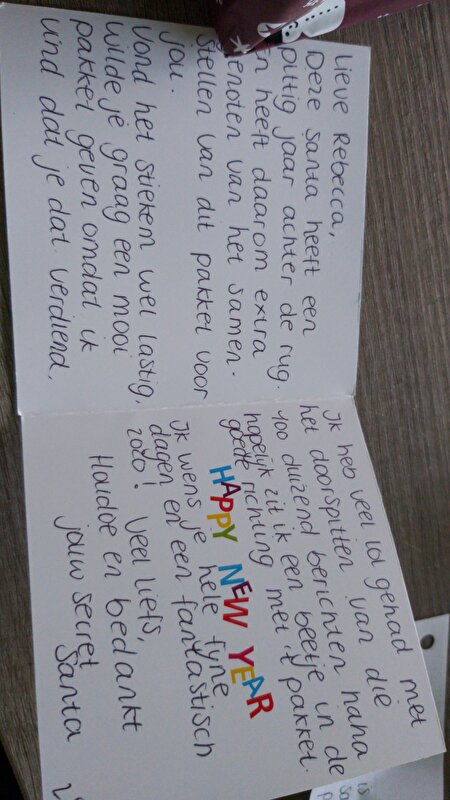 Lieve Rebecca,
Deze santa heeft een
pittig jaar achter de rug.
En heeft daarom extra
genoten van het samen-
stellen van dit pakket voor
jou.
Vond het stiekem wel lastig,
wilde je graag een mooi
pakket geven omdat ik
vind dat je dat verdiend.
Ik heb veel lol gehad met
het doorspitten van die
400 duizend berichten haha
hopelijk zit ik een beetje in de
goede richting met 't pakket.
HAPPY NEW YEAR
Ik wens je hele fijne
dagen en een fantastisch
2020! Veel liefs,
Houdoe en bedankt
jouw secret
Santa